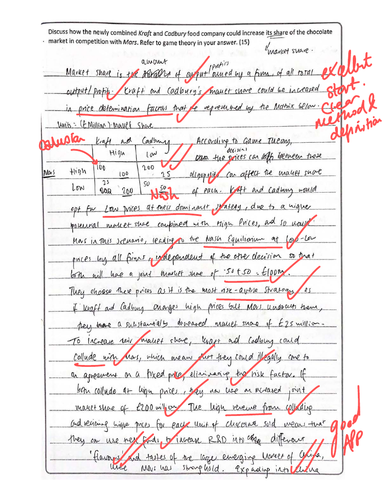 Discuss how the newly combined Kraft and Cadbury food company could increase its share of the chocolate
market in competition with Mars. Refer to game theory in your answer. (15)
market share
amount
Market share is the of output owned by a firm of all total
output/profits. Kraft and Cadbury's market share could be increased
in price determination factors that be represented by the Matrix below.
excellent
start.
clear
method &
definition
Units: (£ Million) Market share
Kraft and Cadbury
High Low
Mars
High 100 100 200 25
Low 25 200 50 50
Nash
According to Game Theory,
the prices can between these
can affect the market share
of each. Kraft and Cadbury would
opt for Low prices, as their dominant strategy, due to a higher
potential market share compared with High Prices, and so would
Mars in this scenario, leading to the Nash Equilibrium at Low-Low
prices by all firms, independent of the other decision so that
both will have a joint market share of 50+50 = £100m.
They choose these prices as it is the most risk-averse strategy as
if Kraft and Cadbury charges high prices but Mars undercuts them,
they have a substantially decreased market share of £25 million.
To increase their market share, Kraft and Cadbury could
collude with Mars, which means that they could illegally come to
an agreement on a fixed price, eliminating the risk factor. If
both collude at high prices, they now have an increased joint
market share of £200 million. The high revenue from colluding
and receiving higher prices for each unit of chocolate sold mean that
they can use funds, to increase R&D into different
flavours and tastes of the large emerging market of China,
Mars has stronghold. Expanding into China
good
APP